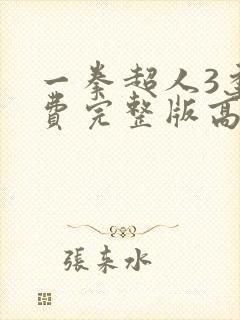 一拳超人3
费完整版高
張来水